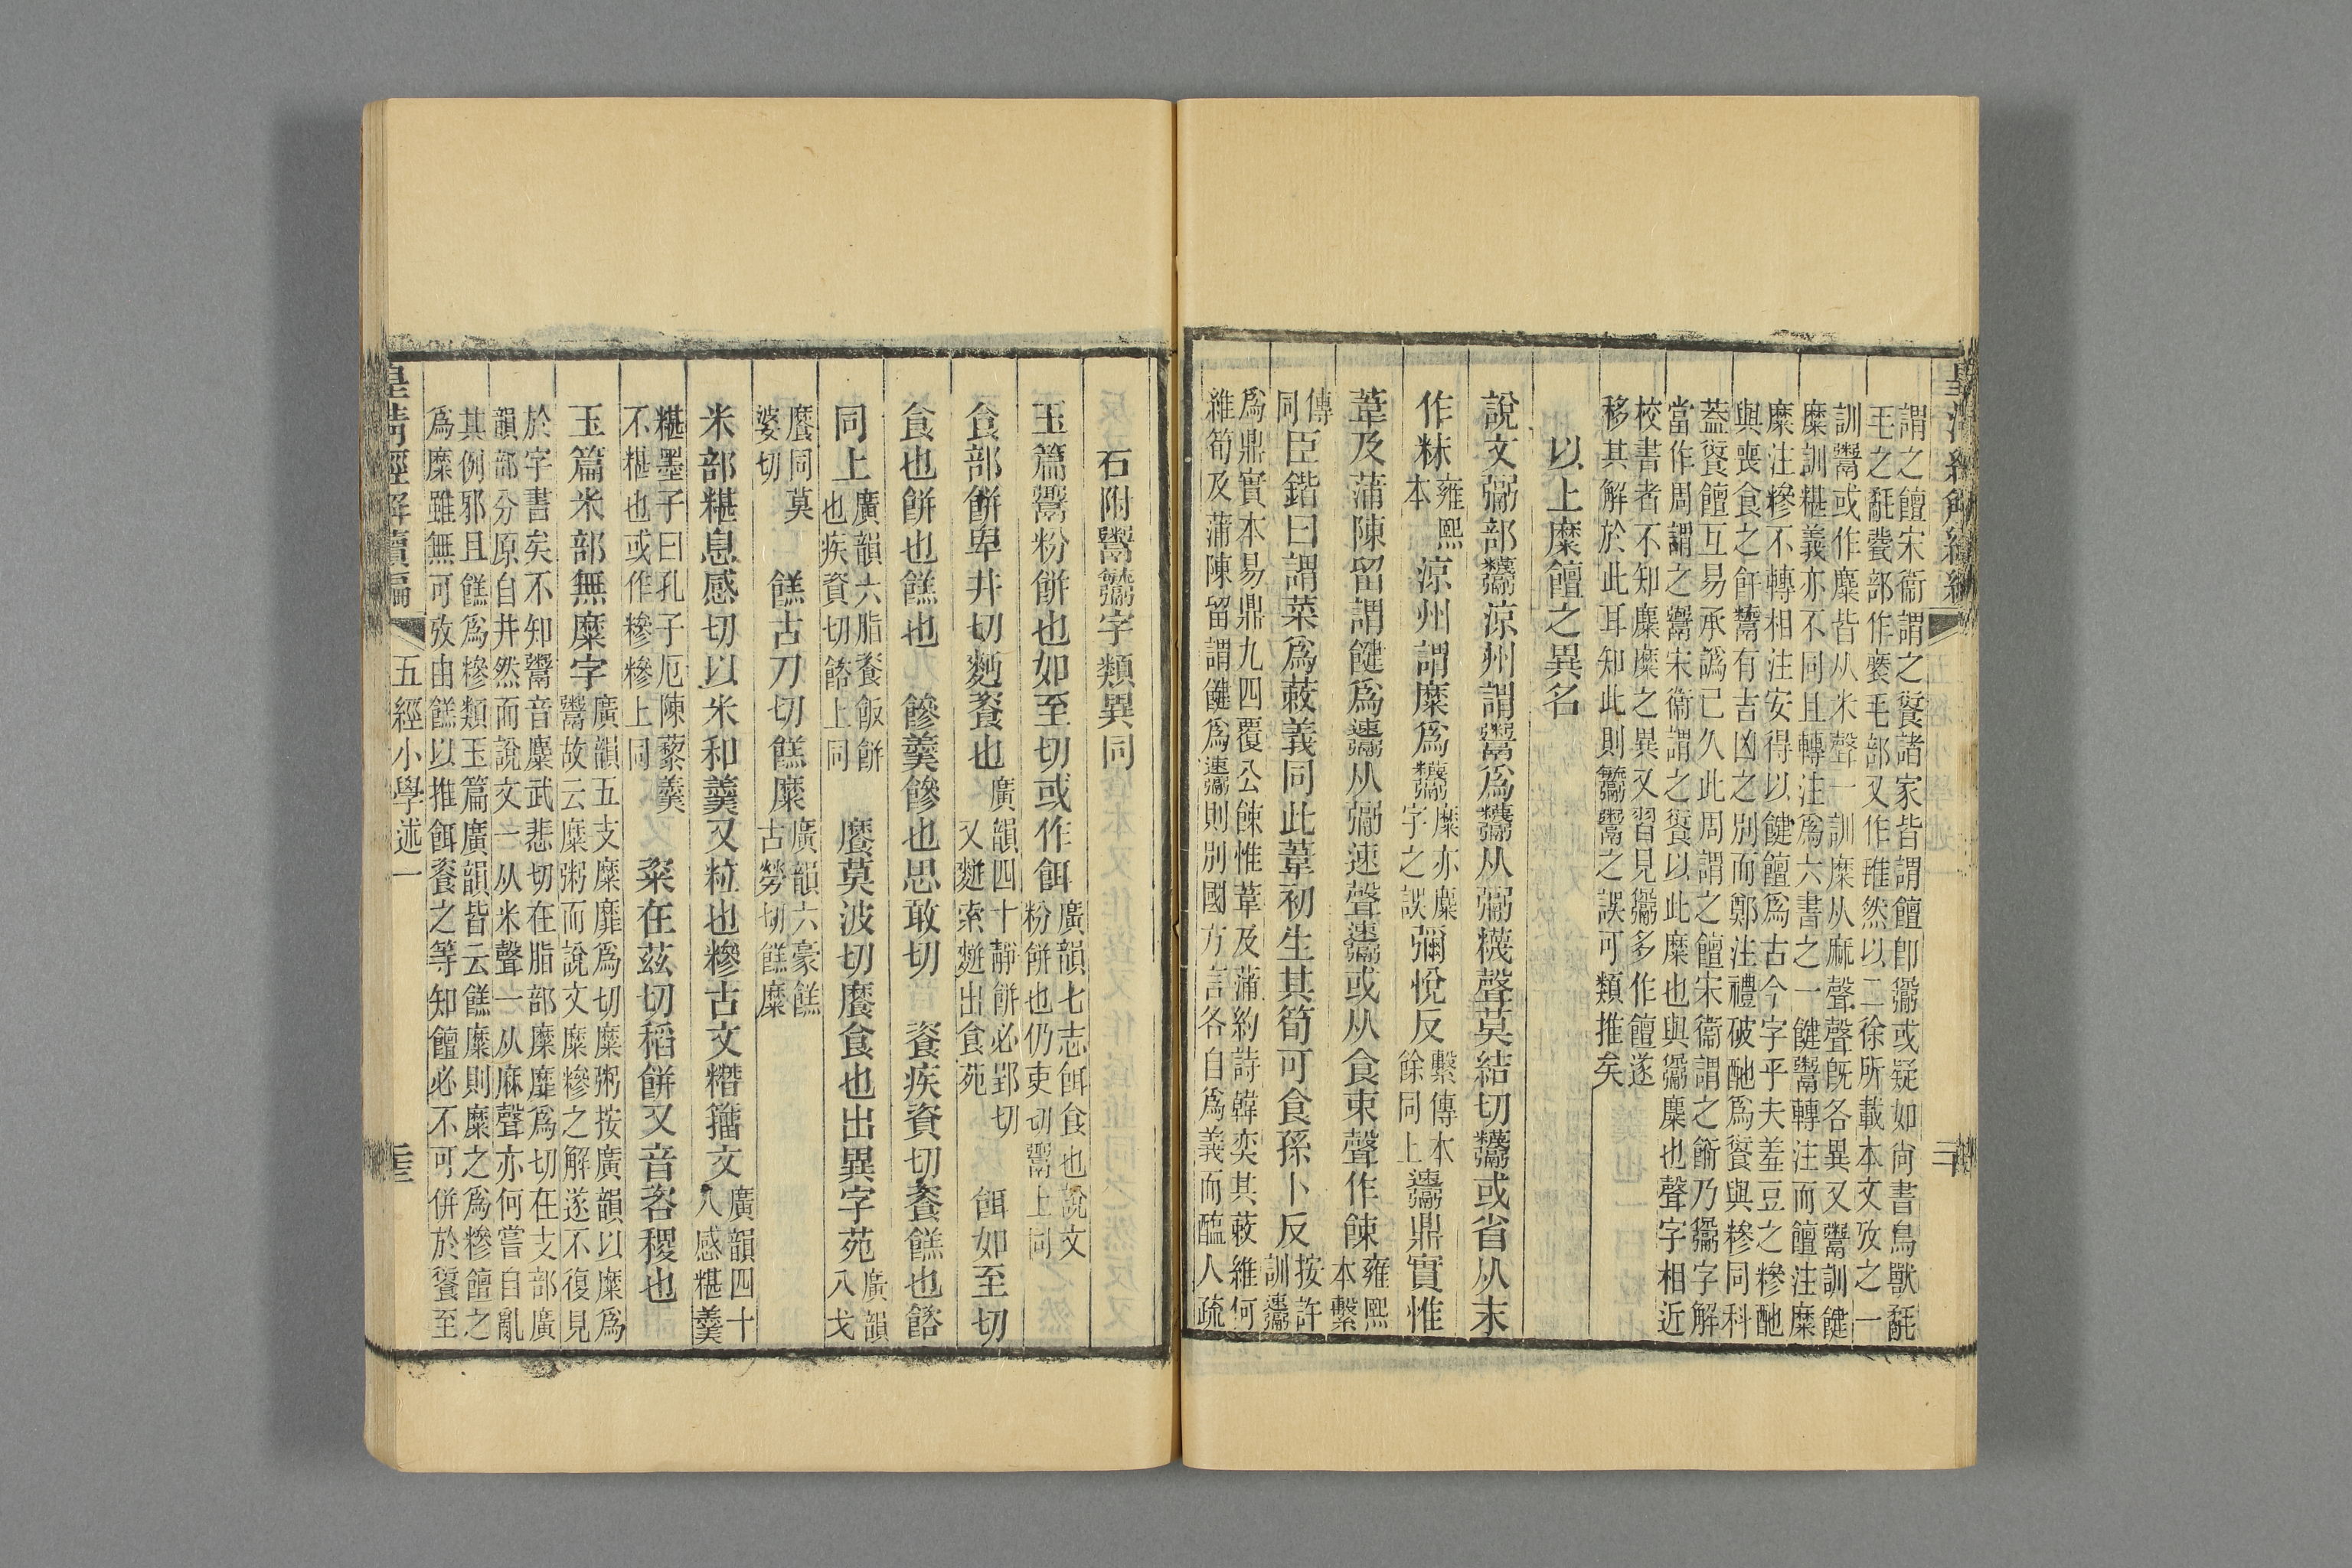 皇清經解續編
三
謂之饘宋衞謂之餥諸家皆謂饘卽鬻或疑如尙書鳥獸氄
毛之氄䰄部作䙝毛部又作雖然以二徐所載本文攷之一
訓鬻或作麋皆从米聲一訓糜从麻聲聲旣各異又鬻訓餰
糜訓糂義亦不同且轉注爲六書之一餰鬻轉注而饘注糜
糜注糝不轉相注安得以餰饘爲古今字乎夫羞豆之糝酏
與喪食之飦鬻有吉凶之別而鄭注禮破酏爲餈與糝同科
葢餥饘互易承譌已久此周謂之饘宋衞謂之餰乃鬻字解
當作周謂之鬻宋衞謂之餥以此糜也與鬻麋也聲字相近
校書者不知麋糜之異又習見鬻多作饘遂
移其解於此耳知此則鬻之誤可類推矣
以上糜饘之異名
說文䰜部䊳涼州謂鬻爲䊳从䰜糢聲莫結切䊳或省从末
作粖雍熙
本涼州謂糜爲䊳糜亦麋
字之誤彌悅反繫傳本
餘同上鬻鼎實惟
葦及蒲陳留謂健爲鬻从䰜速聲鬻或从食束聲作餗雍熙
本繫
傳
同臣鍇曰謂菜爲蔌義同此葦初生其筍可食孫卜反按許
訓鬻
爲鼎實本易鼎九四覆公餗惟葦及蒲約詩韓奕其蔌維何
維筍及蒲陳留謂健爲鬻則別國方言各自爲義而醢人疏
石附鬻字類異同
玉篇鬻粉餠也如至切或作餌廣韻七志餌食也說文
粉餠也仍吏切鬻上同
食部餠卑井切麪餈也廣韻四十靜餠必郢切
又䴺索䴺出食苑餌如至切
食也餠也餻也 餯羹糝也思敢切 餈疾資切餈餻也餎
同上廣韻六脂餈飯餠
也疾資切餎上同 䭧莫波切䭧食也出異字苑廣韻
八戈
䭧同莫
婆切 餻古刀切餻糜廣韻六豪餻
古勞切餻糜
米部糂息感切以米和羹又粒也糝古文糣籒文廣韻四十
八感糂羹
糂墨子曰孔子厄陳藜羹
不糂也或作糝糝上同 粢在茲切稻餠又音咨稷也
玉篇米部無糜字廣韻五支糜靡爲切糜粥按廣韻以糜爲
鬻故云糜粥而說文糜糝之解遂不復見
於字書矣不知鬻音麋武悲切在脂部糜靡爲切在支部廣
韻部分原自井然而說文一从米聲一从麻聲亦何嘗自亂
其例邪且餻爲糝類玉篇廣韻皆云餻糜則糜之爲糝饘之
爲糜雖無可攷由餻以推餌餈之等知饘必不可併於餥至
皇清經解續編
五經小學述一